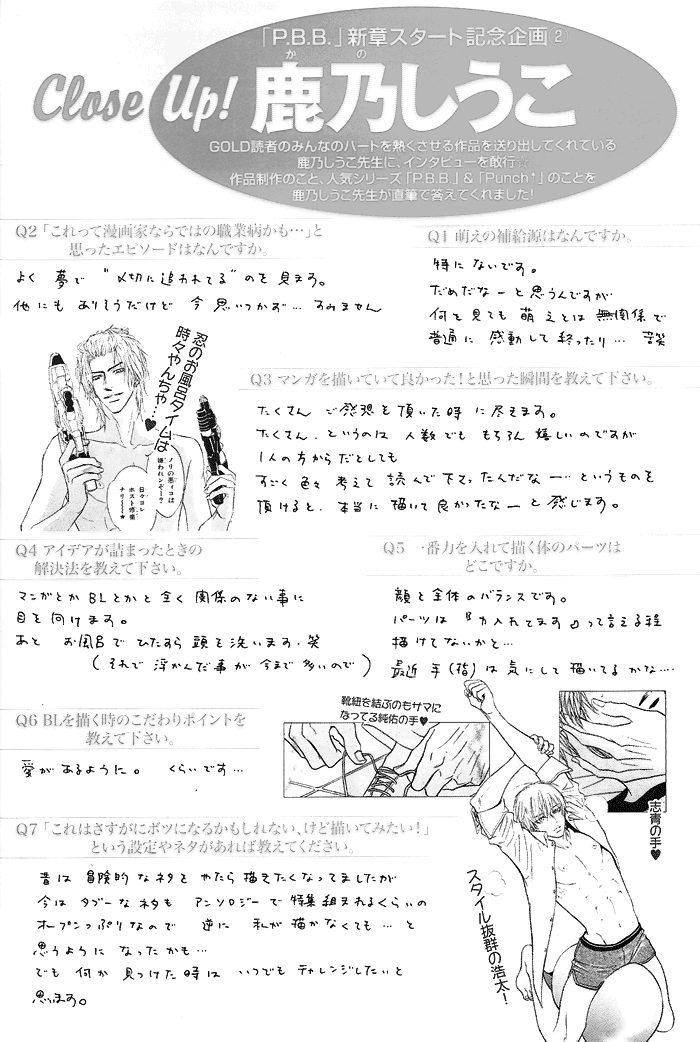 「P.B.B.」新章スタート記念企画②
Close Up!
か の
鹿乃しうこ
GOLD読者のみんなのハートを熱くさせる作品を送り出してくれている
鹿乃しうこ先生に、インタビューを敢行☆
作品制作のこと、人気シリーズ「P.B.B.」&「Punch↑」のことを
鹿乃しうこ先生が直筆で答えてくれました!
Q1 萌えの補給源はなんですか。
特にないです。
だめだなーと思うんですが
何を見ても萌えとは無関係で
普通に感動して終ったり… 苦笑
Q2「これって漫画家ならではの職業病かも…」と
思ったエピソードはなんですか。
よく夢で“〆切に追われてる”のを見ます。
他にもありそうだけど今思いつかず… すみません
忍のお風呂タイムは
時々やんちゃ…♥
ノリの悪ィコは
嫌われンぞー?
日々コレ
ホスト修業
ナリ〜〜★
Q3 マンガを描いていて良かった!と思った瞬間を教えて下さい。
たくさんご感想を頂いた時に尽きます。
たくさん、というのは人数でももちろん嬉しいのですが
1人の方からだとしても
すごく色々考えて読んで下さったんだなー…というものを
頂けると、本当に描いて良かったなーと感じます。
Q4 アイデアが詰まったときの
解決法を教えて下さい。
マンガとかBLとかと全く関係のない事に
目を向けます。
あと お風呂でひたすら頭を洗います。笑
(それで浮かんだ事が今まで多いので)
Q5 一番力を入れて描く体のパーツは
どこですか。
顔と全体のバランスです。
パーツは『力入れてます』って言える程
描けてないかと…
最近手(指)は気にして描いてるかな…
靴紐を結ぶのもサマに
なってる純佑の手♥
志青の手♥
スタイル抜群の浩太!
Q6 BLを描く時のこだわりポイントを
教えて下さい。
愛があるように。 くらいです…
Q7「これはさすがにボツになるかもしれない、けど描いてみたい!」
という設定やネタがあれば教えてください。
昔は冒険的なネタをやたら描きたくなってましたが
今はタブーなネタもアンソロジーで特集組まれるくらいの
オープンっぷりなので 逆に私が描かなくても…と
思うようになったかも…
でも何か見つけた時はいつでもチャレンジしたいと
思います。